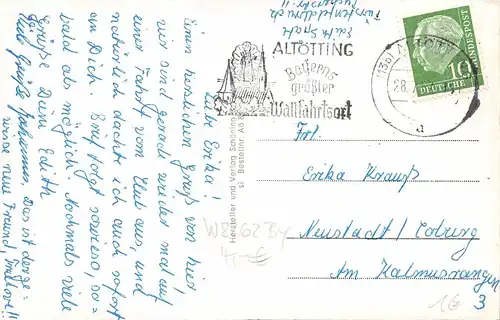 Liebe Erika!
Einen herzlichen Gruß von hier!
Wir sind gerade wieder mal auf
eine Fahrt vom Club aus, und
natürlich dachte ich auch sofort
an Dich. Brief folgt sowieso, so-
bald als möglich. Nochmals viele
Grüße Deine Edith
Viele Grüße Johannes, das ist der ge-
neue Freund,
Fürstenfeldbruck
Edith
ALTÖTTING
Bayerns
größter
Wallfahrtsort
(13b) ALTÖTTING
28.
a
10
DEUTSCHE
BUNDESPOST
Hersteller und Verlag Schöning
Bestellnr
Frl.
Erika Krauß
Neustadt/Coburg
Am Kalmusrangen
3